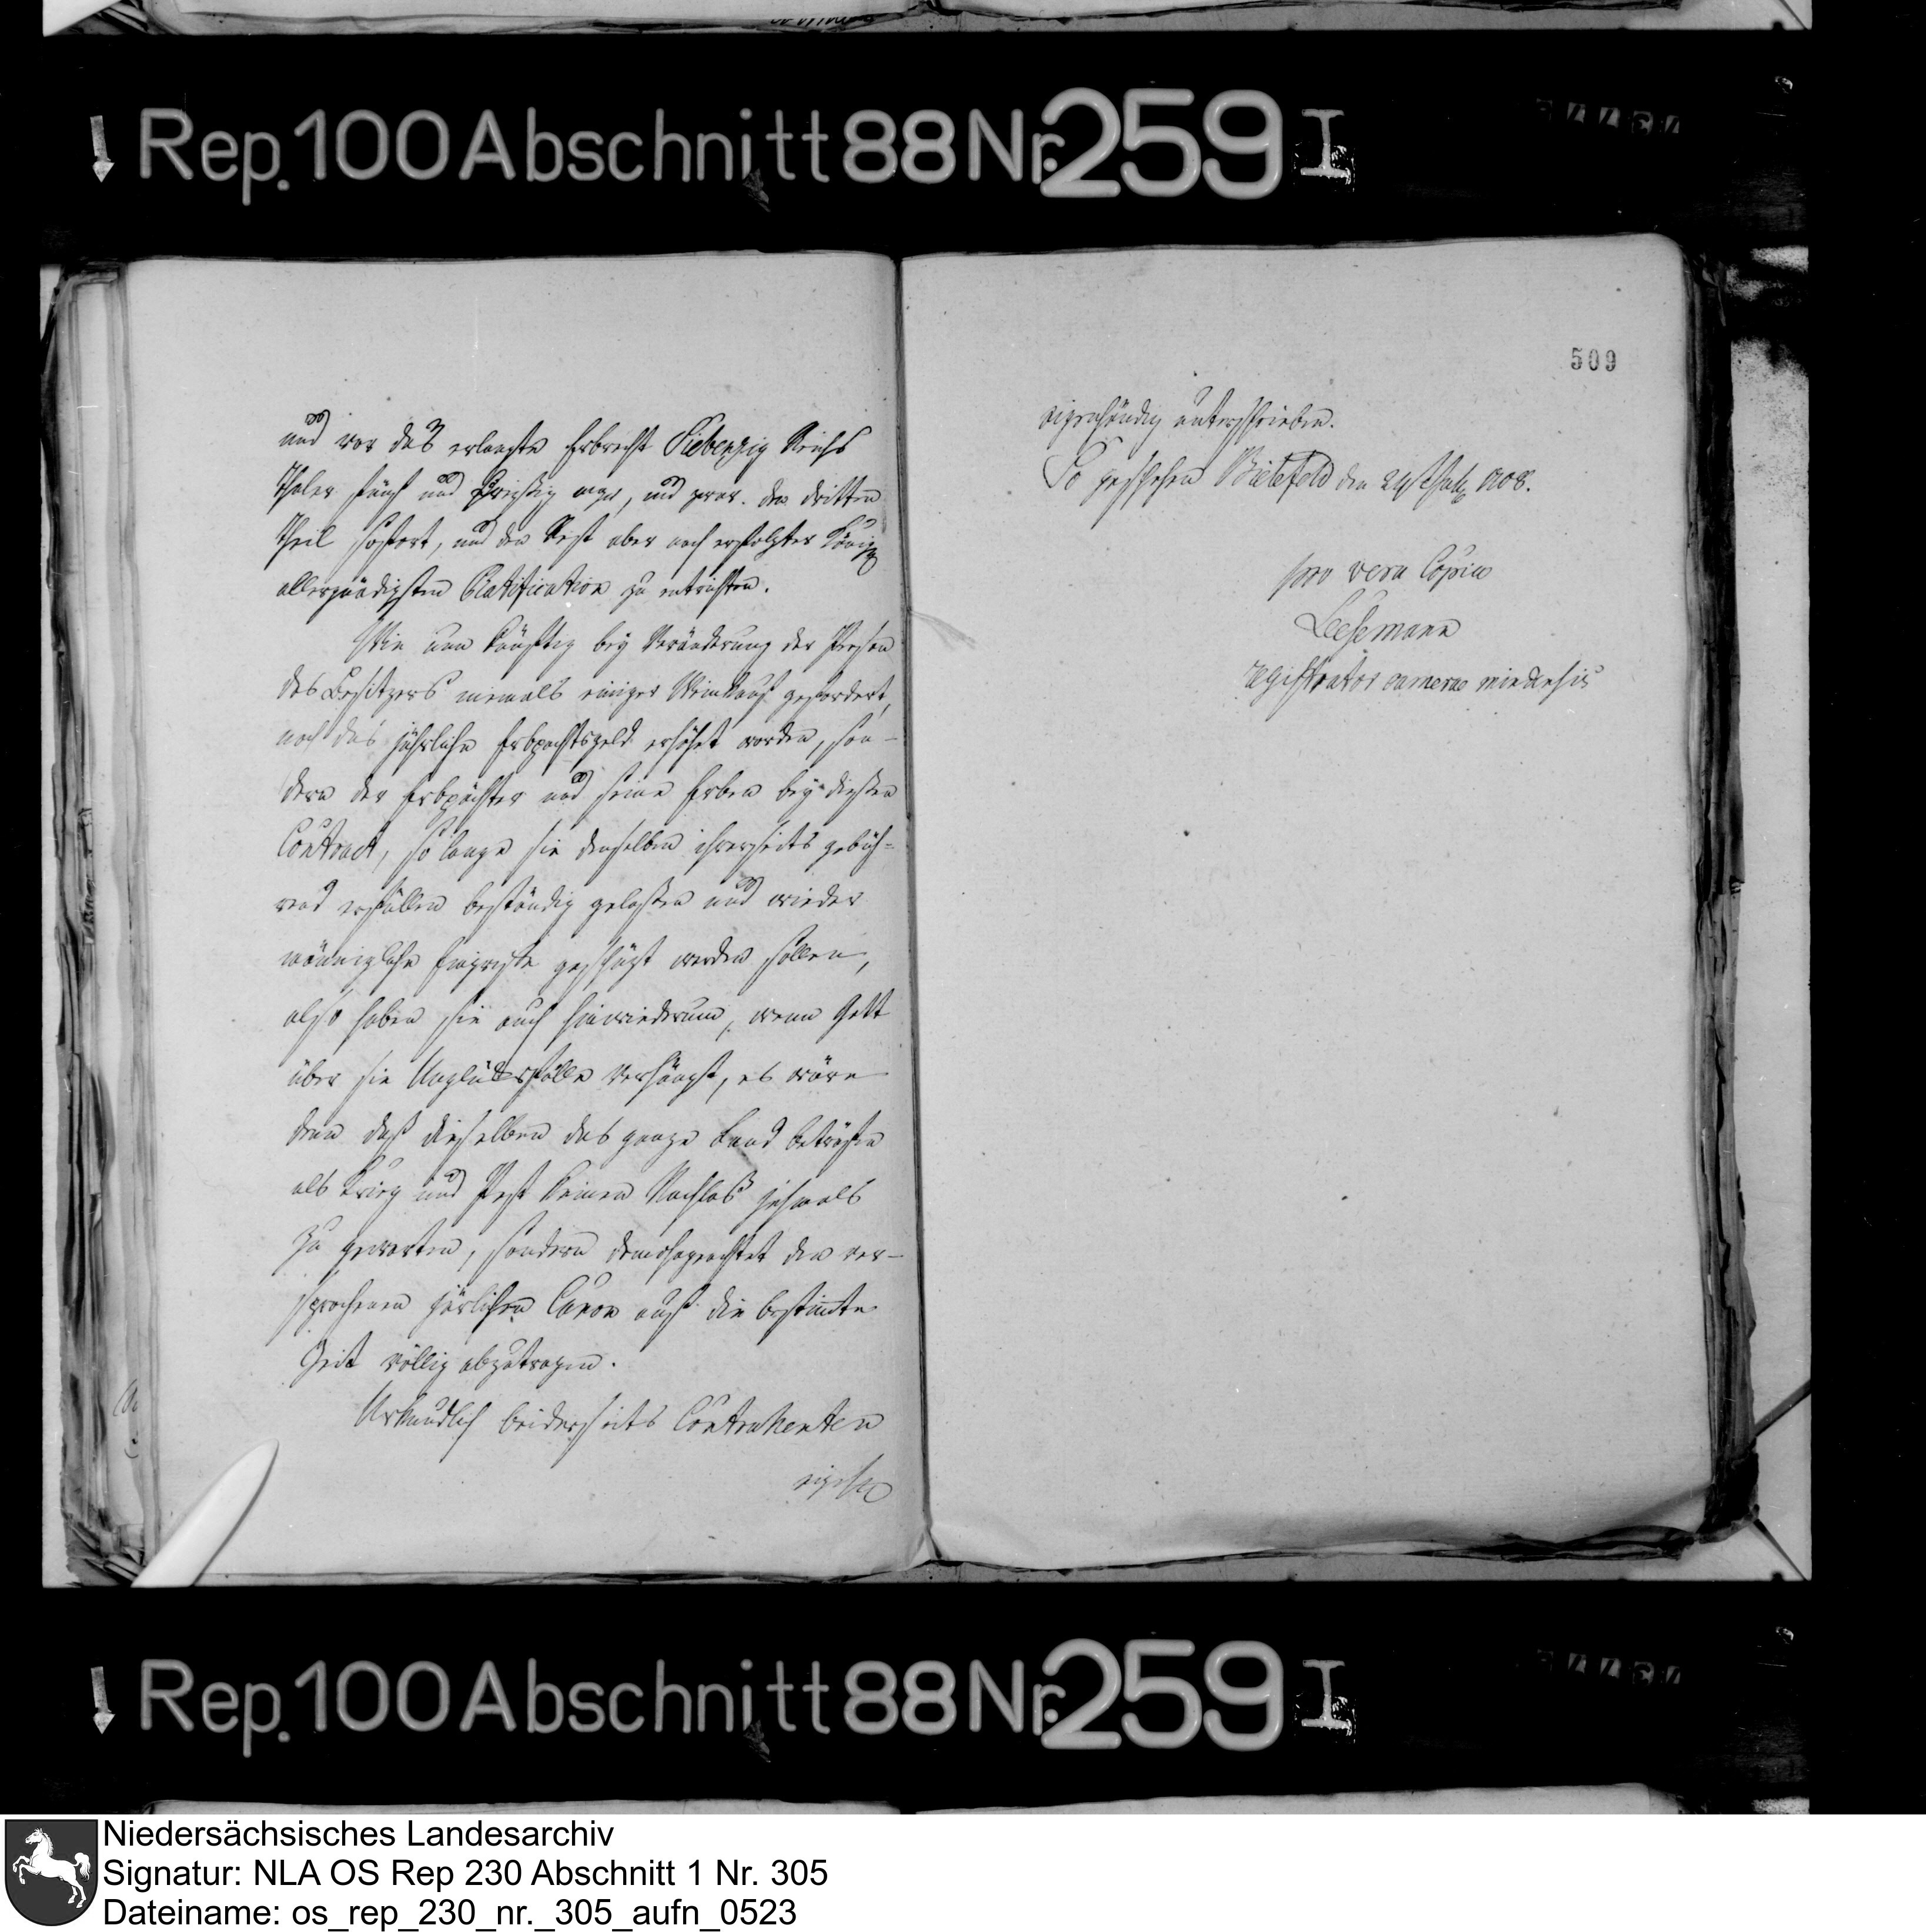 Rep. 100 Abschnitt 88 Nr. 259 I
509
und vor das erlangte Erbrecht Siebenzig Reichs
Thaler fünf und dreißig mgr, und zwar den dritten
Theil sofort, und den Rest aber nach erfolgter Königl
allergnädigsten Ratification zu entrichten.
Wie nun künftig bey Veränderung der Person
des Besitzers niemals einiger Weinkauf gefordert,
noch das jährliche Erbpachtsgeld erhöhet worden, son-
dern der Erbpächter und seine Erben bey diesen
Contract, so lange sie denselben ihrerseits gebüh-
rend erfüllen beständig gelaßen und wieder
männigliche geschützt werden sollen,
also haben sie auch hinwiederum, wenn Gott
über sie Unglücksfälle verhängt, es wäre
denn daß dieselben das ganze Land beträfen
als Krieg und Pest keinen Nachlaß jehmals
zu gewarten, sondern demohngeachtet den ver-
sprochenen järlichen Canon auf die bestimte
Zeit völlig abzutragen.
Urkundlich beiderseits Contrahenten
eigenhändig unterschrieben.
So geschehen Bielefeld den
pro vera Copia
Leesemann
registrator camerae mindensis
Rep. 100 Abschnitt 88 Nr. 259 I
Niedersächsisches Landesarchiv
Signatur: NLA OS Rep 230 Abschnitt 1 Nr. 305
Dateiname: os_rep_230_nr._305_aufn_0523